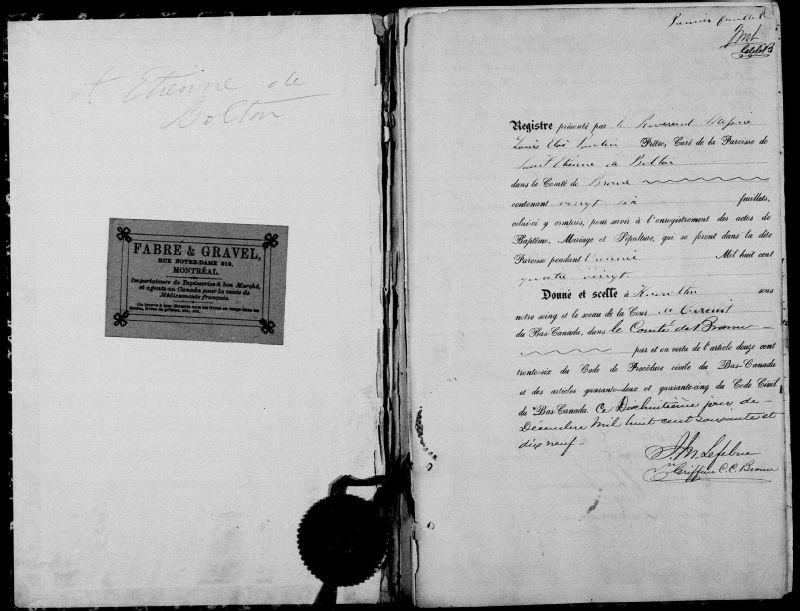 St. Etienne de
Bolton
FABRE & GRAVEL,
RUE NOTRE-DAME 219,
MONTRÉAL.
Importateurs de Tapisseries à bon Marché,
et agents au Canada pour la vente de
Médicaments français.
On trouve à leur librairie tous les livres en usage dans les
écoles, livres de prières, etc., etc.
Premier feuillet
Registre présenté par le Reverend Messire
Louis Eloi Prêtre, Curé de la Paroisse de
Saint Etienne de Bolton
dans le Comté de Brome
contenant vingt six feuillets,
celui-ci y compris, pour servir à l'enregistrement des actes de
Baptême, Mariage et Sépulture, qui se feront dans la dite
Paroisse pendant l'année Mil huit cent
quatre vingt
Donné et scellé à Knowlton sous
notre seing et le sceau de la Cour de Circuit
du Bas-Canada, dans le Comté de Brome
par et en vertu de l'article douze cent
trente-six du Code de Procédure civile du Bas-Canada
et des articles quarante-deux et quarante-cinq du Code Civil
du Bas-Canada. Ce Dixhuitième jour de
Décembre Mil huit cent soixante et
dix neuf
Lefebvre
Greffier C. C. Brome